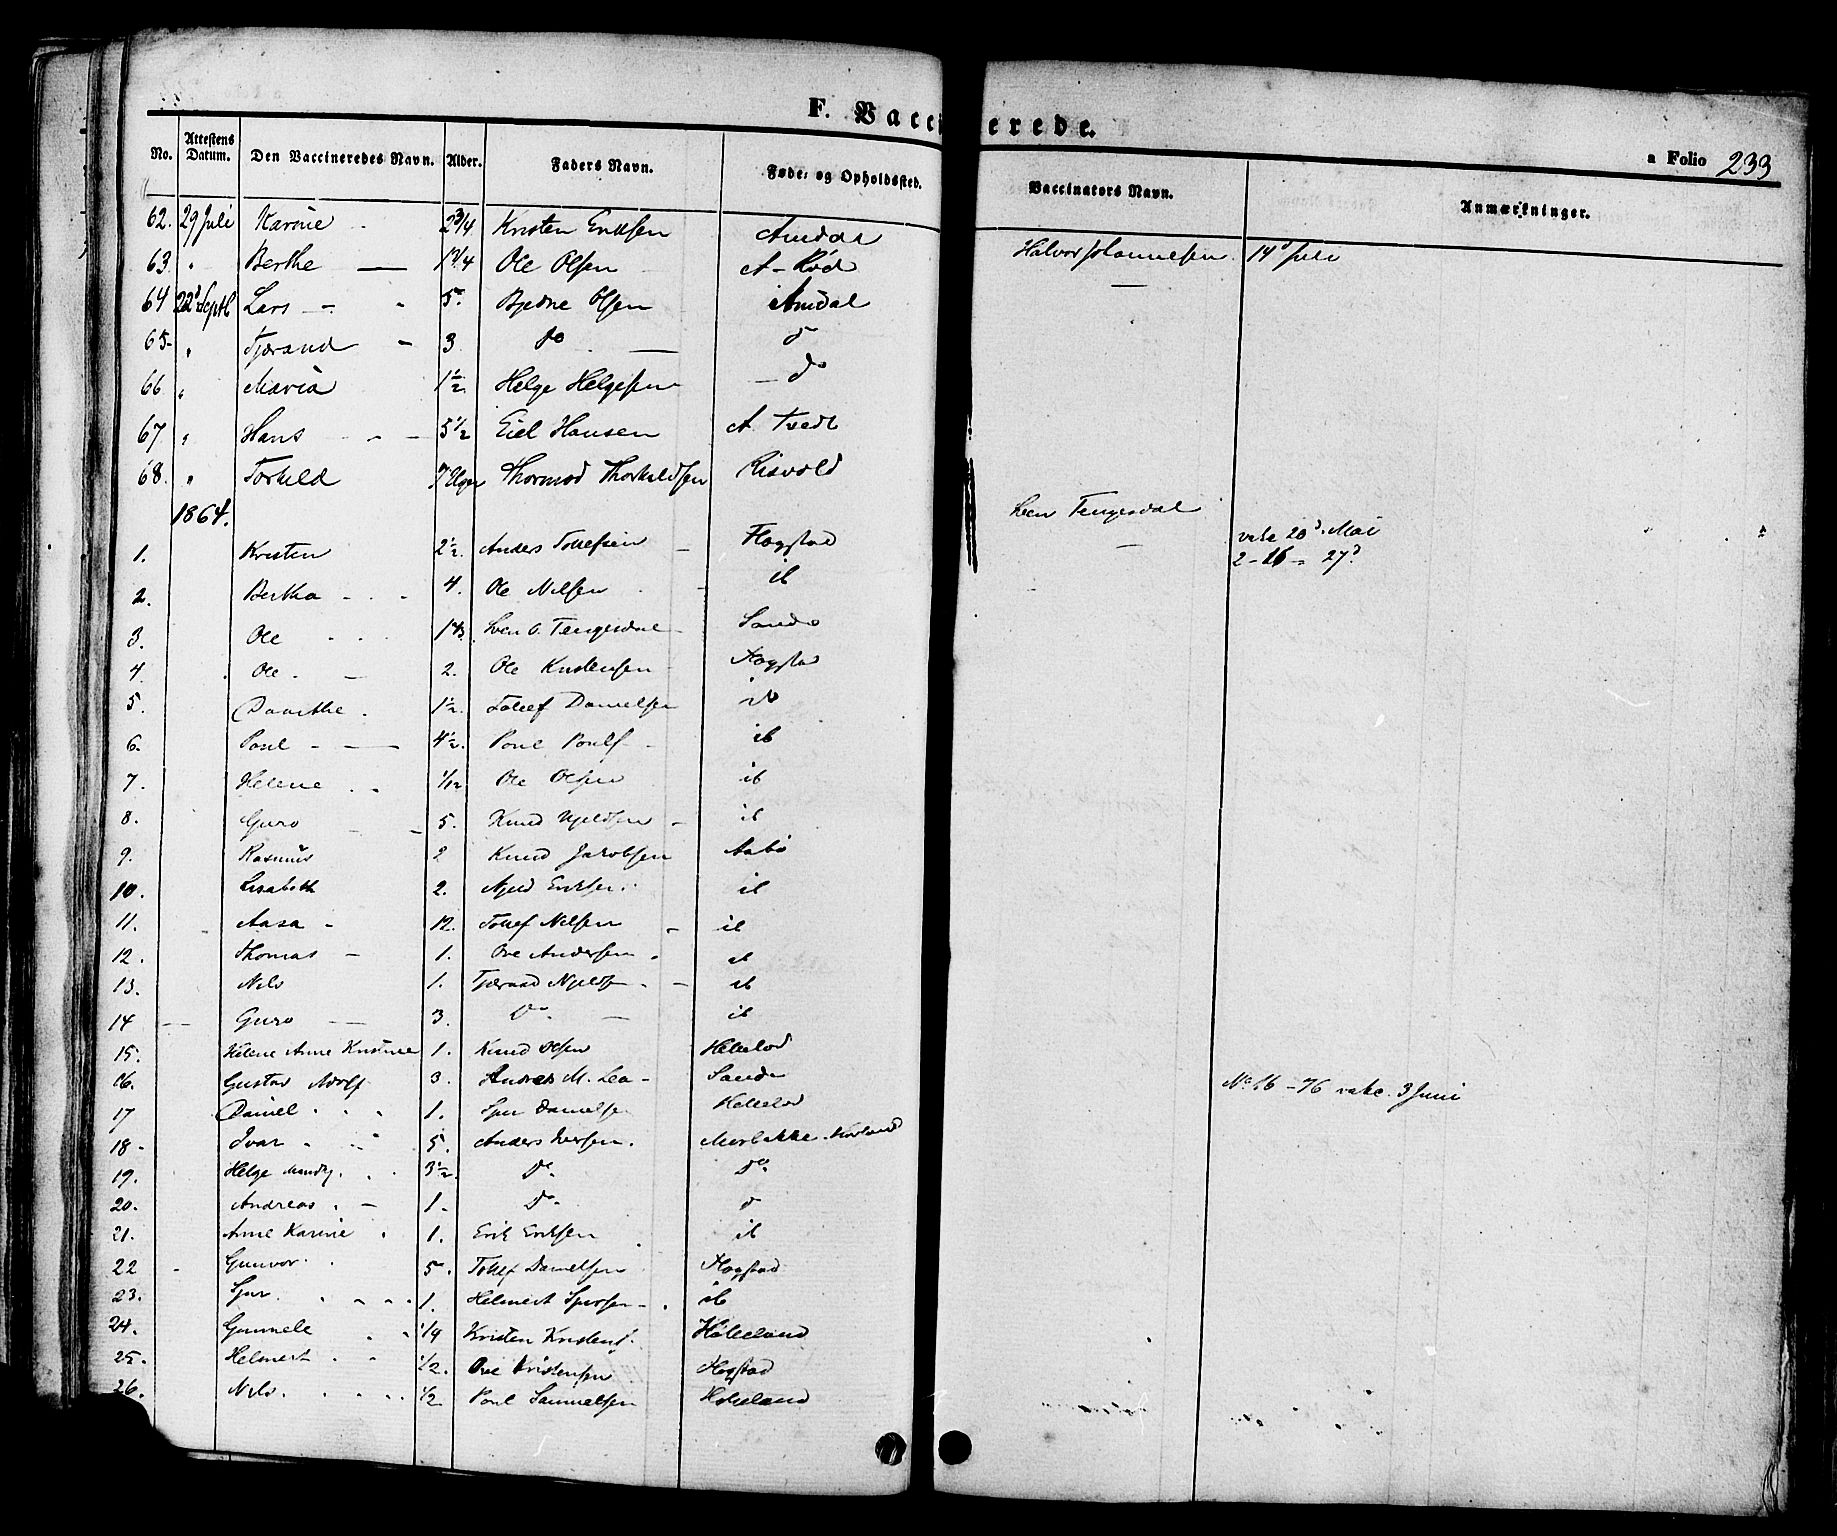 F. Vaccinerede.
a Folio 233
No. Attestens Datum. Den Vaccineredes Navn. Alder. Faders Navn. Føde- og Opholdssted. Vaccinators Navn. Anmærkninger.
62. 29 Juli Karine 2 3/4 Kristen Eriksen Amdal Halvor Johannesen 14d Juli
63. " Berthe — 1 3/4 Ole Olsen A-Rød —
64 22d Septb Lars — " 5. Olsen Amdal
65- " Tjærand - 3 do — d
66 " Maria 1 1/2 Helge Helgesen — do
67 " Hans 5 1/2 Eiel Hansen A Tvedt
68. " Torkild 7 Uger Thormod Thorkildsen Risvold
1864.
1. Kristen 2 1/2. Anders Tollefsen Hogstad Tengesdal vake 20d. Mai
2. Bertha 4. Ole Nilsen ib — 2-16 - 27d
3. Ole O. Tengesdal Sande
4. Ole 2. Ole Kristensen Hogstad
5. Dorthe 1 1/2. Tollef Danielsen ib
6. Poul — 4 1/2. Poul Pouls ib
7. Helene 1/12 Ole Olsen ib
8. Guro 5. Knud ib
9. Rasmus 2 Knud Jakobsen Aabø
10. Lisabeth 2. Njeld Eriksen ib
11. Aasa 12. Tollef Nilsen ib
12. Thomas — 1. Ove Andersen ib
13. Nils 1. Tjærand Njelds ib
14 Guro — 3. Do. — ib
15. Helene Anne Kristine 1. Knud Olsen
16. Gustav Adolf 3. Andreas M. Lea Sande No 16-76 vake. 3 Juni
17 Daniel 1. Danielsen
18. Ivar 5. Anders Iversen.
19. Helge 3 1/2. Do. Do.
20. Andreas 1. Do. d
21. Anne Karine 1. Erik Eriksen ib
22 Gunvor 5. Tollef Danielsen Hogstad
23. 1. Helmert ib
24. Gunnele 1/4 Kristen Kristens. Hækeland
25. Helmert 1/2. Ove Kristensen Hogstad
26. Nils. 1/2 Poul Samuelsen